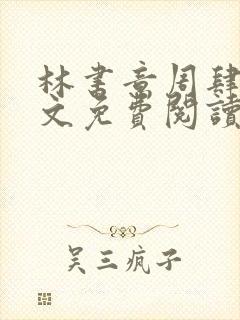 林書音周肆
文免費閱讀
吴三疯子